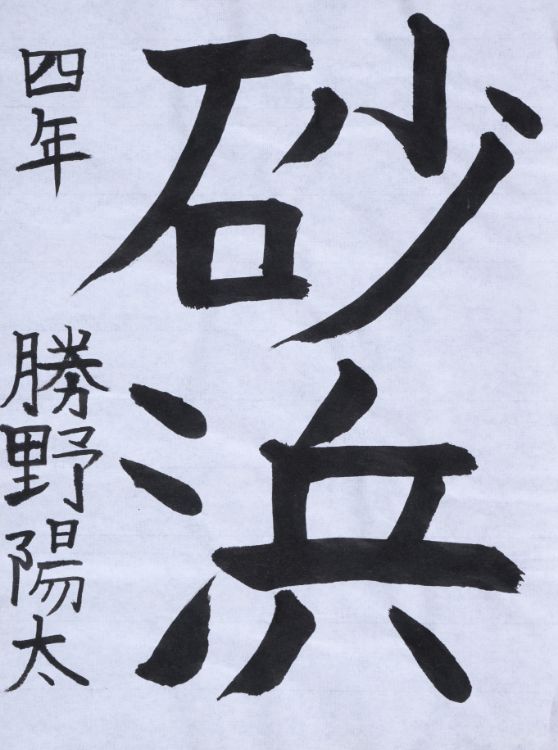 砂浜
四年 勝野陽太